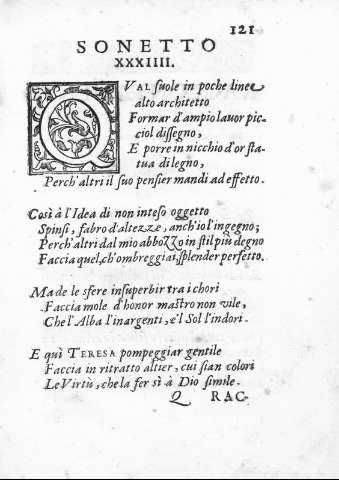 121
SONETTO
XXXIIII.
QVAL suole in poche linee
alto architetto
Formar d'ampio lauor pic-
ciol dissegno,
E porre in nicchio d'or sta-
tua di legno,
Perch'altri il suo pensier mandi ad effetto.
Così à l'Idea di non inteso oggetto
Spinsi, fabro d'altezze, anch'io l'ingegno;
Perch'altri dal mio abbozzo in stil più degno
Faccia quel, ch'ombreggiai, splender perfetto.
Ma de le sfere insuperbir tra i chori
Faccia mole d'honor mastro non vile,
Che l'Alba l'inargenti, e'l Sol l'indori.
E quì TERESA pompeggiar gentile
Faccia in ritratto altier, cui sian colori
Le Virtù, che la fer sì à Dio simile.
Q RAC-